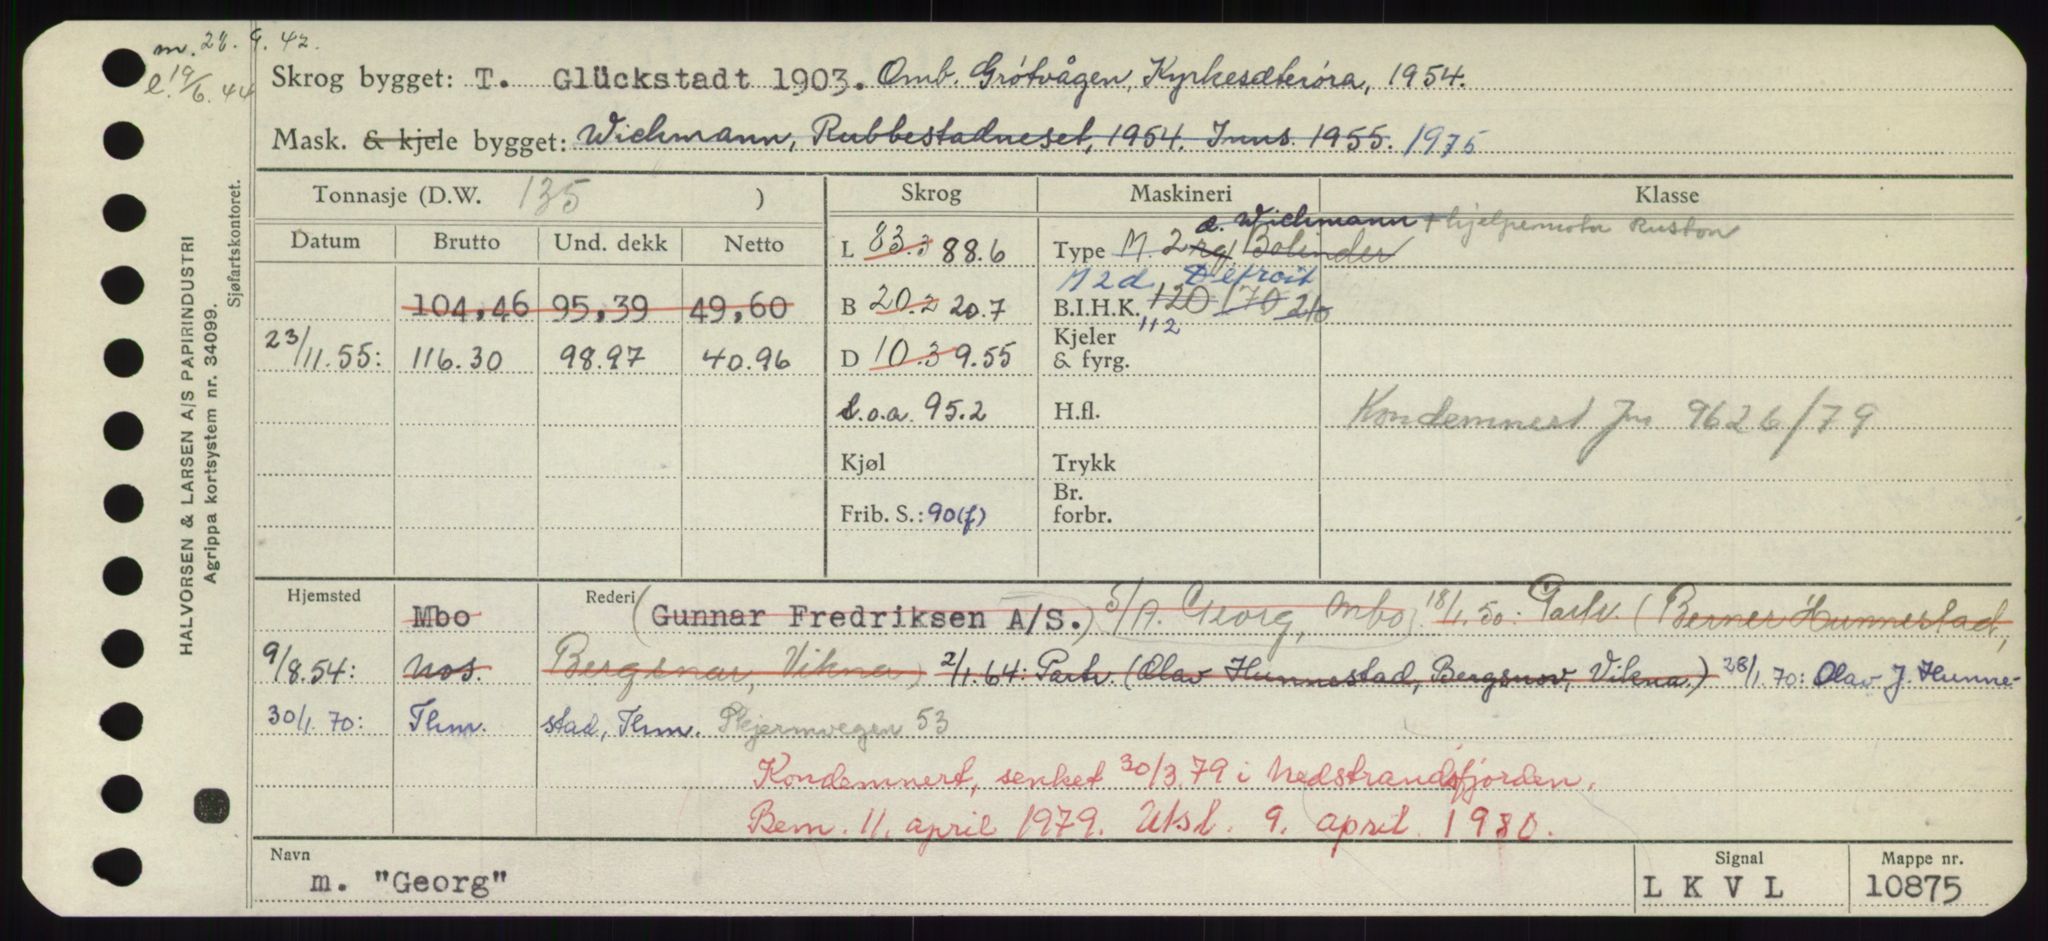 m. 28. 9. 42.
l. 19/6. 44
Skrog bygget: T. Glückstadt 1903. Omb. Grótvågen, Kyrkesæterøra, 1954.
Mask. & kjele bygget: Wichmann, Rubbestadneset, 1954. Inns. 1955. 1975
Tonnasje (D.W. 135 ) Skrog Maskineri Klasse
Datum Brutto Und. dekk Netto
L 83.3 88.6 Type M. 2rg. Bolinder d. Wichmann + hjelpemotor Ruston
M 2 d. Detroit
104,46 95,39 49,60 B 20.2 20.7 B.I.H.K. 120 170 210
112
23/11.55: 116.30 98.97 40.96 D 10.3 9.55 Kjeler & fyrg.
L.o.a. 95.2 H.fl. Kondemnert Jnr. 9626/79
Kjøl Trykk
Frib. S.: 90(f) Br. forbr.
Hjemsted Mbo Rederi (Gunnar Fredriksen A/S.) S/A. Georg, Mbo). 18/1.50: Partr. (Berner Hunnestad,
9/8.54: Nos. Bergsnov, Vikna) 2/1.64: Partr. (Olav Hunnestad, Bergsnov, Vikna.) 28/1.70: Olav J. Hunne-
30/1.70: Thm. stad, Thm. Skjermvegen 53
Kondemnert, senket 30/3.79 i Nedstrandsfjorden.
Bem. 11. april 1979. Utsl. 9. april 1980.
Navn Signal Mappe nr.
m. "Georg" L K V L 10875
HALVORSEN & LARSEN A/S PAPIRINDUSTRI
Agrippa kortsystem nr. 34099.
Sjøfartskontoret.